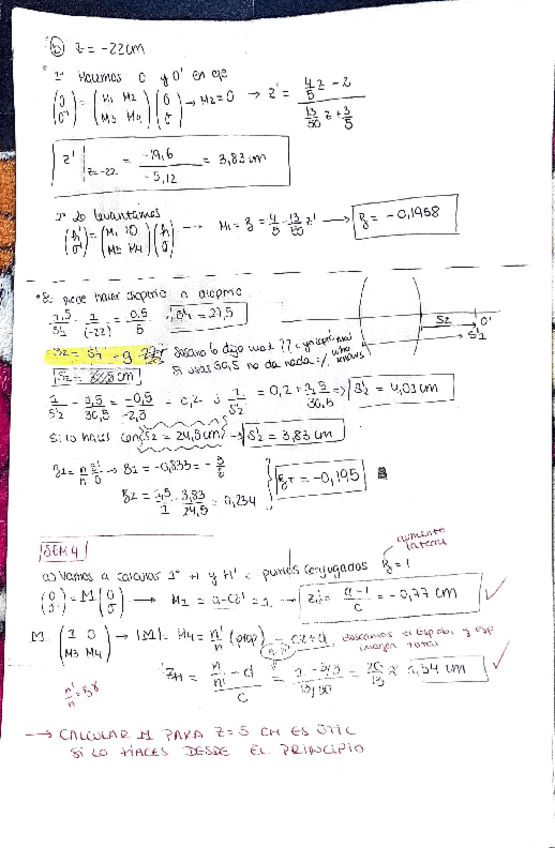 b) z = -22cm
1º Hacemos O y O' en eje
(0 σ') = (M1 M2 M3 M4)(0 σ) → M2=0 → z' = (4/5 z - 2)/(13/50 z + 3/5)
z'|z=-22 = -19,6/-5,12 = 3,83 cm
2º Lo levantamos
(h' σ') = (M1 0 M3 M4)(h σ) → M1 = β = 4/5 - 13/50 z' → β = -0,1958
puede hacer dioptrio a dioptrio
1,5/S'1 - 1/(-22) = 0,5/5 S'1 = 27,5
S2 O' S'1
S2 = S'1 - 9 Susana lo dijo mal ??
Si usas 30,5 no da nada :/ who knows
1/S'2 - 1,5/30,5 = -0,5/-2,5 = 0,2 1/S'2 = 0,2 + 1,5/30,5 => S'2 = 4,03 cm
Si lo haces con S2 = 24,5cm → S'2 = 3,83 cm
β1 = → β1 = -0,833 =
β2 = 1,5/1 · 3,83/24,5 = 0,234
βT = -0,195
SEM 4
aumento lateral
a) Vamos a calcular 1º H y H' < puntos conjugados β = 1
(0 σ') = M (0 σ) → M1 = a-cz' = 1 → = (a-1)/c = -0,77 cm
M (1 0 M3 M4) → |M| = M4 = n'/n (prop) cz+d, buscamos
imagen total
n'/n = βγ
zH = (n/n' - d)/c = = 20/13 ≈ 1,54 cm
→ CALCULAR M PARA Z=5 CM ES ÚTIL
SI LO HACES DESDE EL PRINCIPIO